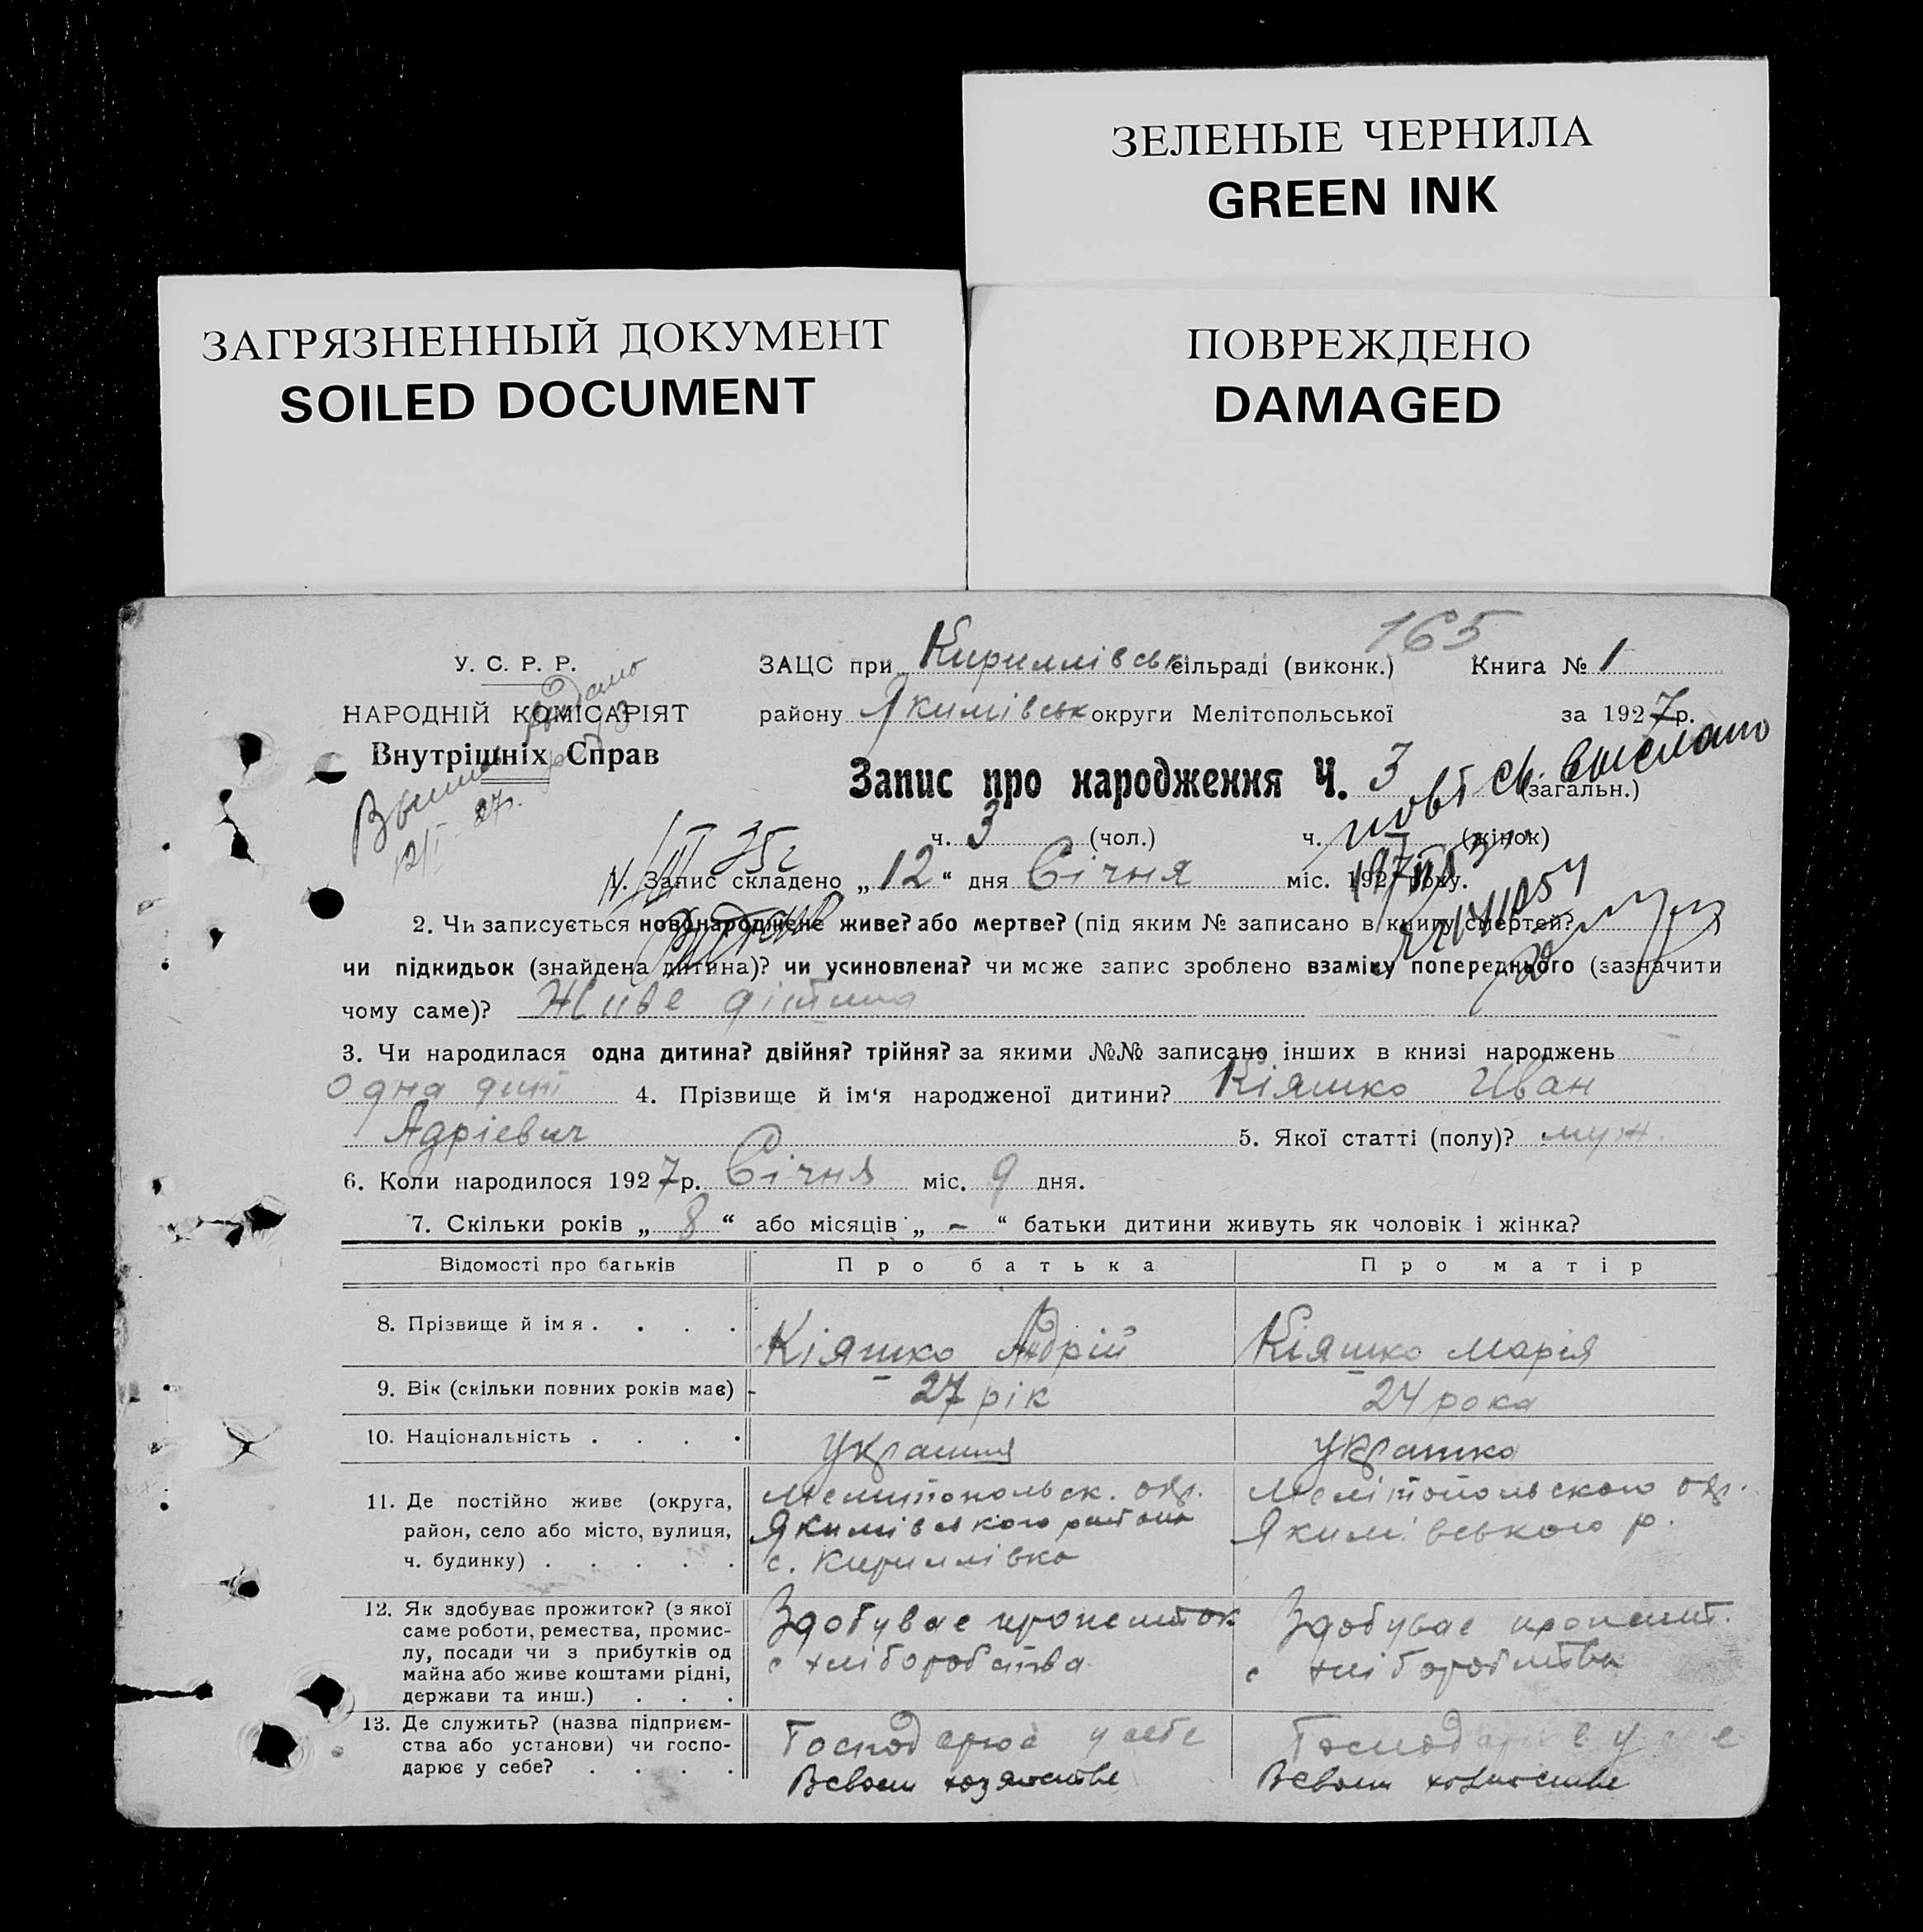 ЗЕЛЕНЫЕ ЧЕРНИЛА
GREEN INK
ЗАГРЯЗНЕННЫЙ ДОКУМЕНТ
SOILED DOCUMENT
ПОВРЕЖДЕНО
DAMAGED
165
У. С. Р. Р.
НАРОДНІЙ КОМІСАРІЯТ
Внутрішніх Справ
12/I 27г.
ЗАЦС при Кириллівськ сільраді (виконк.) Книга № 1
району Якимівськ округи Мелітопольської за 1927р.
Запис про народження Ч. 3 (загальн.)
повт св. выслано
ч. 3 (чол.) ч. (жінок)
1. Запис складено „12“ дня Січня міс. 1927 року.
2. Чи записується новонароджене живе? або мертве? (під яким № записано в книгу смертей?
чи підкидьок (знайдена дитина)? чи усиновлена? чи може запис зроблено взаміну попереднього (зазначити
чому саме)? Живе дітина
3. Чи народилася одна дитина? двійня? трійня? за якими №№ записано інших в книзі народжень
Одна дит 4. Прізвище й ім‘я народженої дитини? Кіяшко Иван
Адріевич 5. Якої статті (полу)? муж.
6. Коли народилося 1927р. Січня міс. 9 дня.
7. Скільки років „8“ або місяців „-“ батьки дитини живуть як чоловік і жінка?
Відомості про батьків Про батька Про матір
8. Прізвище й імя . . . . Кіяшко Андрій Кіяшко Марія
9. Вік (скільки повних років має) - 27 рік 24 рока
10. Національність . . . . Українець Українка
11. Де постійно живе (округа, район, село або місто, вулиця, ч. будинку) . . . . .
Мелитопольск. окр.
Якимівського района
с. Кириллівка
Мелітопольского окр.
Якимівського р.
12. Як здобуває прожиток? (з якої
саме роботи, ремества, промис-
лу, посади чи з прибутків од
майна або живе коштами рідні,
держави та инш.) . . .
Здобувае прожиток
с хліборобства
Здобувае прожит.
с хліборобства
13. Де служить? (назва підприєм-
ства або установи) чи госпо-
дарює у себе? . . . .
Господарює у себе
В своем хозяйстве
Господарює у себе
В своем хозяйстве